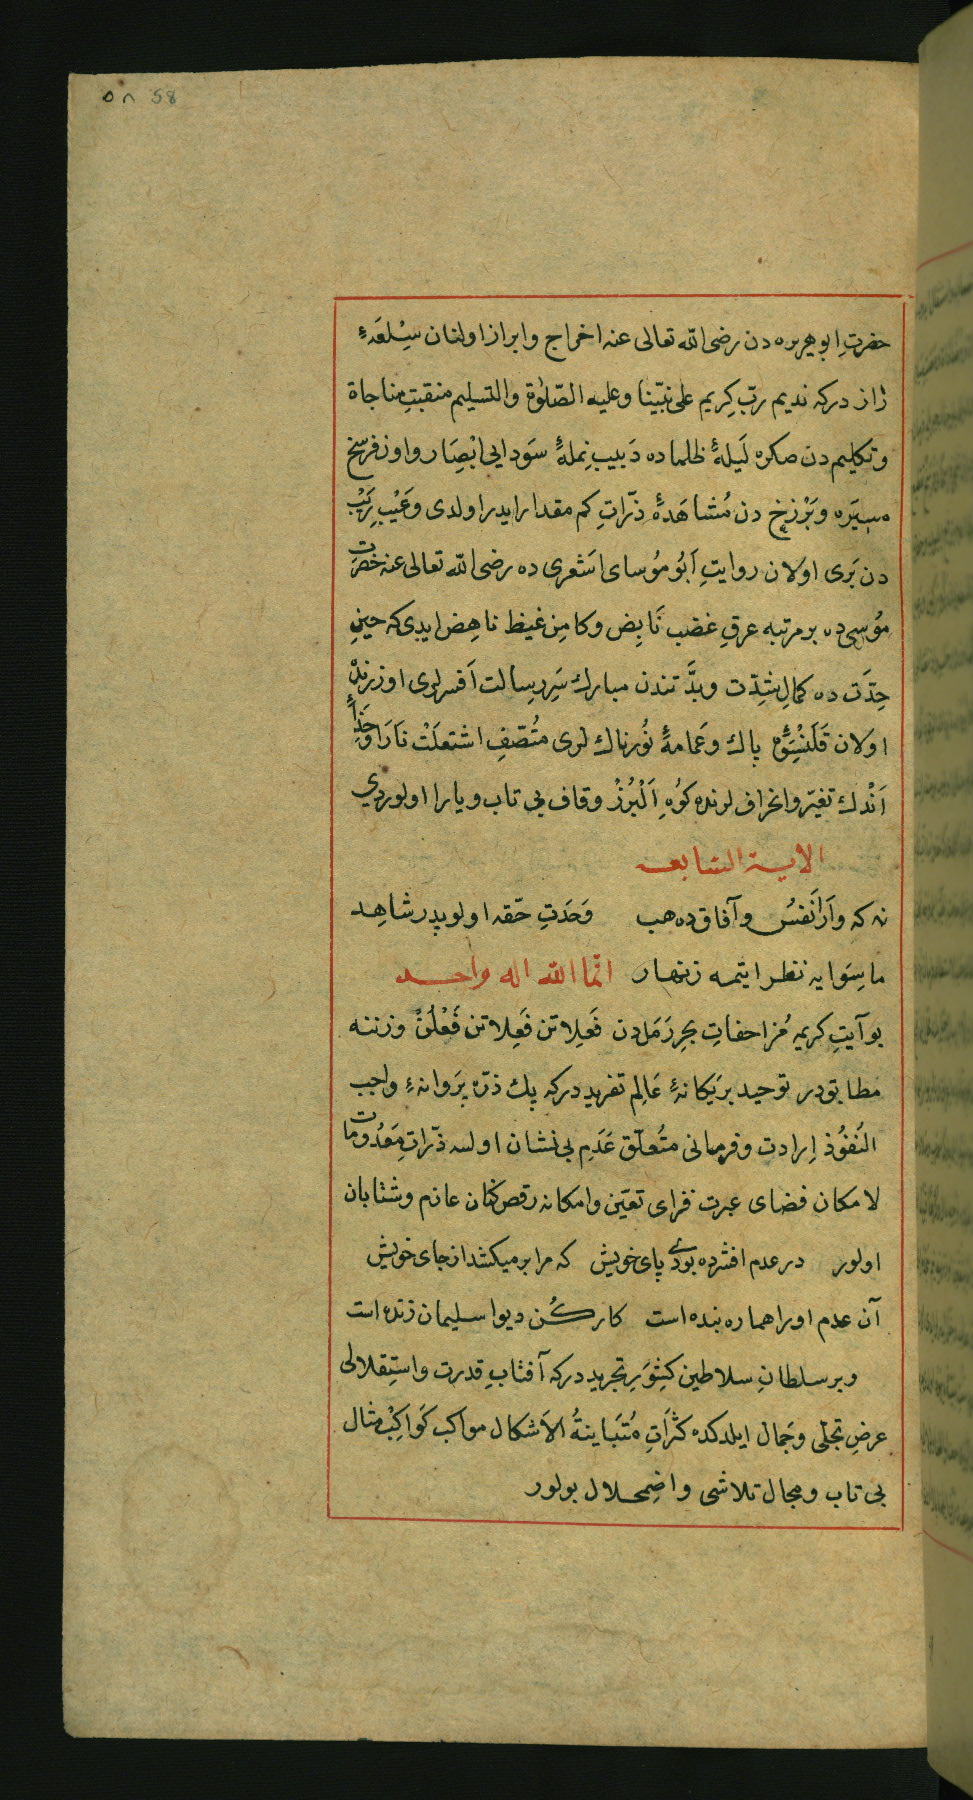 ٥٨ 58
حضرتِ ابو هریره دن رضی الله تعالی عنه اخراج و ابراز اولنان سِلعَهٔ
راز درکه ندیم ربّ کِریم علی نبیّنا و علیه الصّلوٰة والتسلیم منقبتِ مناجاة
و تکلیم دن صکره لَیلهٔ ظلماده دَبیبِ نملهٔ سَودایی ابْصِار و اون فرسخ
مسیَره و بَرْزخ دن مُشاهَدهٔ ذرّاتِ کم مقدار ایدر اولدی و عَیْب رَیْب
دن بَری اولان روایتِ اَبُو مُوسای اشعری ده رضی الله تعالی عنه حضرت
مُوسی ده بر مرتبه عرقِ غضب نَابِض و کامِن غیظ ناهِض ایدی که حینِ
حِدَّت ده کمالِ شدِّت و بدَّتندن مبارك سَرِ رسالت افسرلری اوزرنده
اولان قَلَنْسُوۀ پاك و عَمامهٔ نُورناك لری متُصّفِ اشتعلَتْ نَارَا
اَنْدك تغیّر و انحراف لرنده کوُهِ اَلْبُرْز و قاف بی تاب و یارا اولوردی
الایة السابعه
نه که وار اَنْفُس و آفاق ده هب وَحدَتِ حقه اولوپدر شاهد
ما سِوایه نظر ایتمه زنهار انّما الله اله واحد
بو آیتِ کریمه مُزاحفاتِ بحرِ رَمَل دن فَعِلاتن فَعِلاتن فَعْلُنْ وزننه
مطابقدر توحید بر یَکانهٔ عَالِم تفرید درکه پك ذرّه پَروانهٔ واجب
النَفوُذ اِرادت و فرمانی متُعلّق عَدَمِ بی نشان اولسه ذرّاتِ مَعدُومات
لامکان فضای عبرت فزای تعیّن و امکانه رقص کنان عازم و شتابان
اولور در عدم افشرده بودی پای خویش که مرا بر میکشد از جای خویش
آن عدم اورا هماره بنده است کارکُن دیوا سلیمان زنده است
و بر سلطانِ سلاطین کِشْوَرِ تجرید درکه آفتابِ قدرت و استِقلالی
عرضِ تجلّی و جَمال ایلدکده کثَراتِ مُتَباینةُ الاَشکال مواکب کَواکِبْ مثال
بی تاب و مجال تلاشی و اضِمحلال بولور